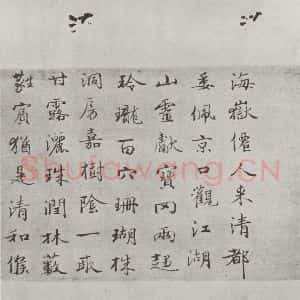 海嶽僊人來清都
委佩京口觀江湖
山靈獻寶罔兩起
玲瓏百穴珊瑚株
洞房嘉樹陰一畝
甘露灑珠潤林藪
蕤賓猶是清和候
Shufawang.CN